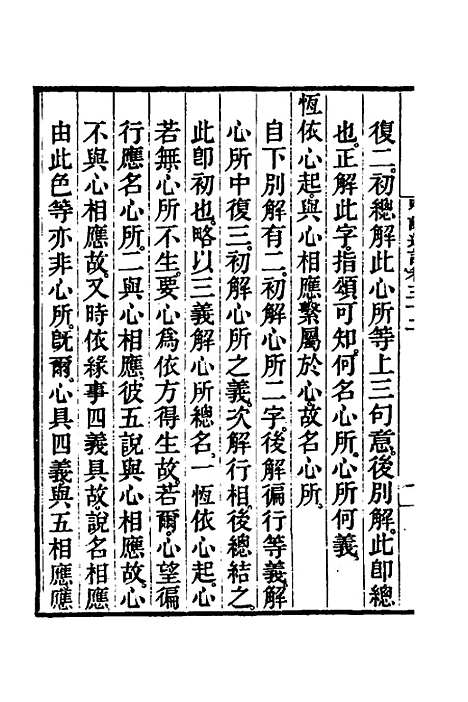 復二。初總解此心所等上三句意。後別解。此卽總
也。正解此字。指頌可知。何名心所。心所何義。
恆依心起。與心相應。繫屬於心。故名心所。
自下別解有二。初解心所二字。後解徧行等義。解
心所中復三。初解心所之義。次解行相。後總結之。
此卽初也。略以三義解心所總名。一恆依心起。心
若無。心所不生。要心爲依方得生故。若爾。心望徧
行應名心所。二與心相應。彼五說與心相應故。心
不與心相應故。又時依緣事四義具故。說名相應。
由此色等亦非心所。旣爾。心具四義與五相應。應